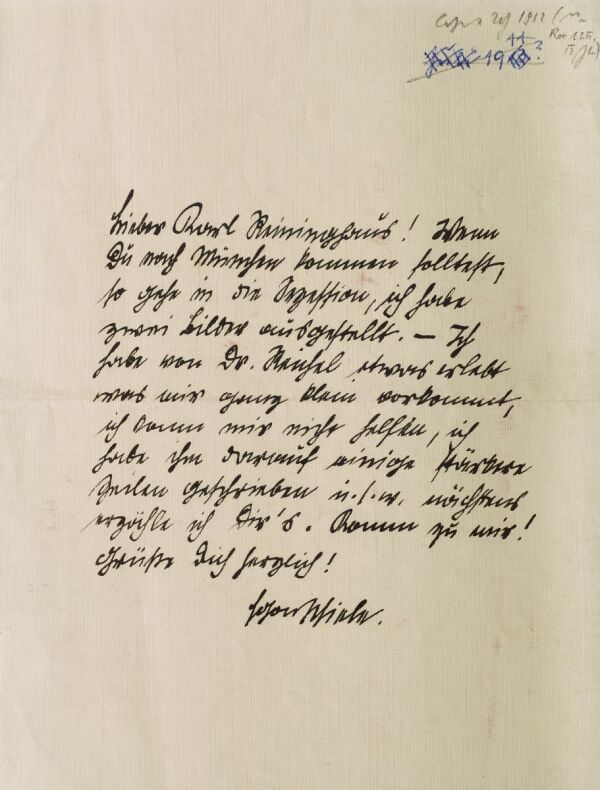 1912
1911?
Lieber Karl Reininghaus! Wenn
Du nach München kommen solltest,
so gehe in die Sezession, ich habe
zwei Bilder ausgestellt. – Ich
habe von Dr. Reichel etwas erlebt
was mir ganz klein vorkommt,
ich kann mir nicht helfen, ich
habe ihm darauf einige stärkere
Zeilen geschrieben u.s.w. nächstens
erzähle ich Dir's. Komm zu mir!
Grüße Dich herzlich!
Egon Schiele.